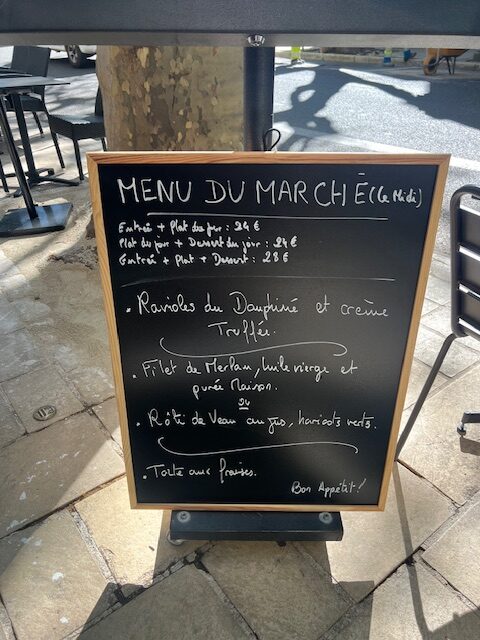 MENU DU MARCHÉ (Le Midi)
Entrée + Plat du jour : 24 €
Plat du jour + Dessert du jour : 24 €
Entrée + Plat + Dessert : 28 €
• Ravioles du Dauphiné et crème
Truffée.
• Filet de Merlan, huile vierge et
purée Maison.
ou
• Rôti de Veau au jus, haricots verts.
• Tarte aux fraises.
Bon Appétit!